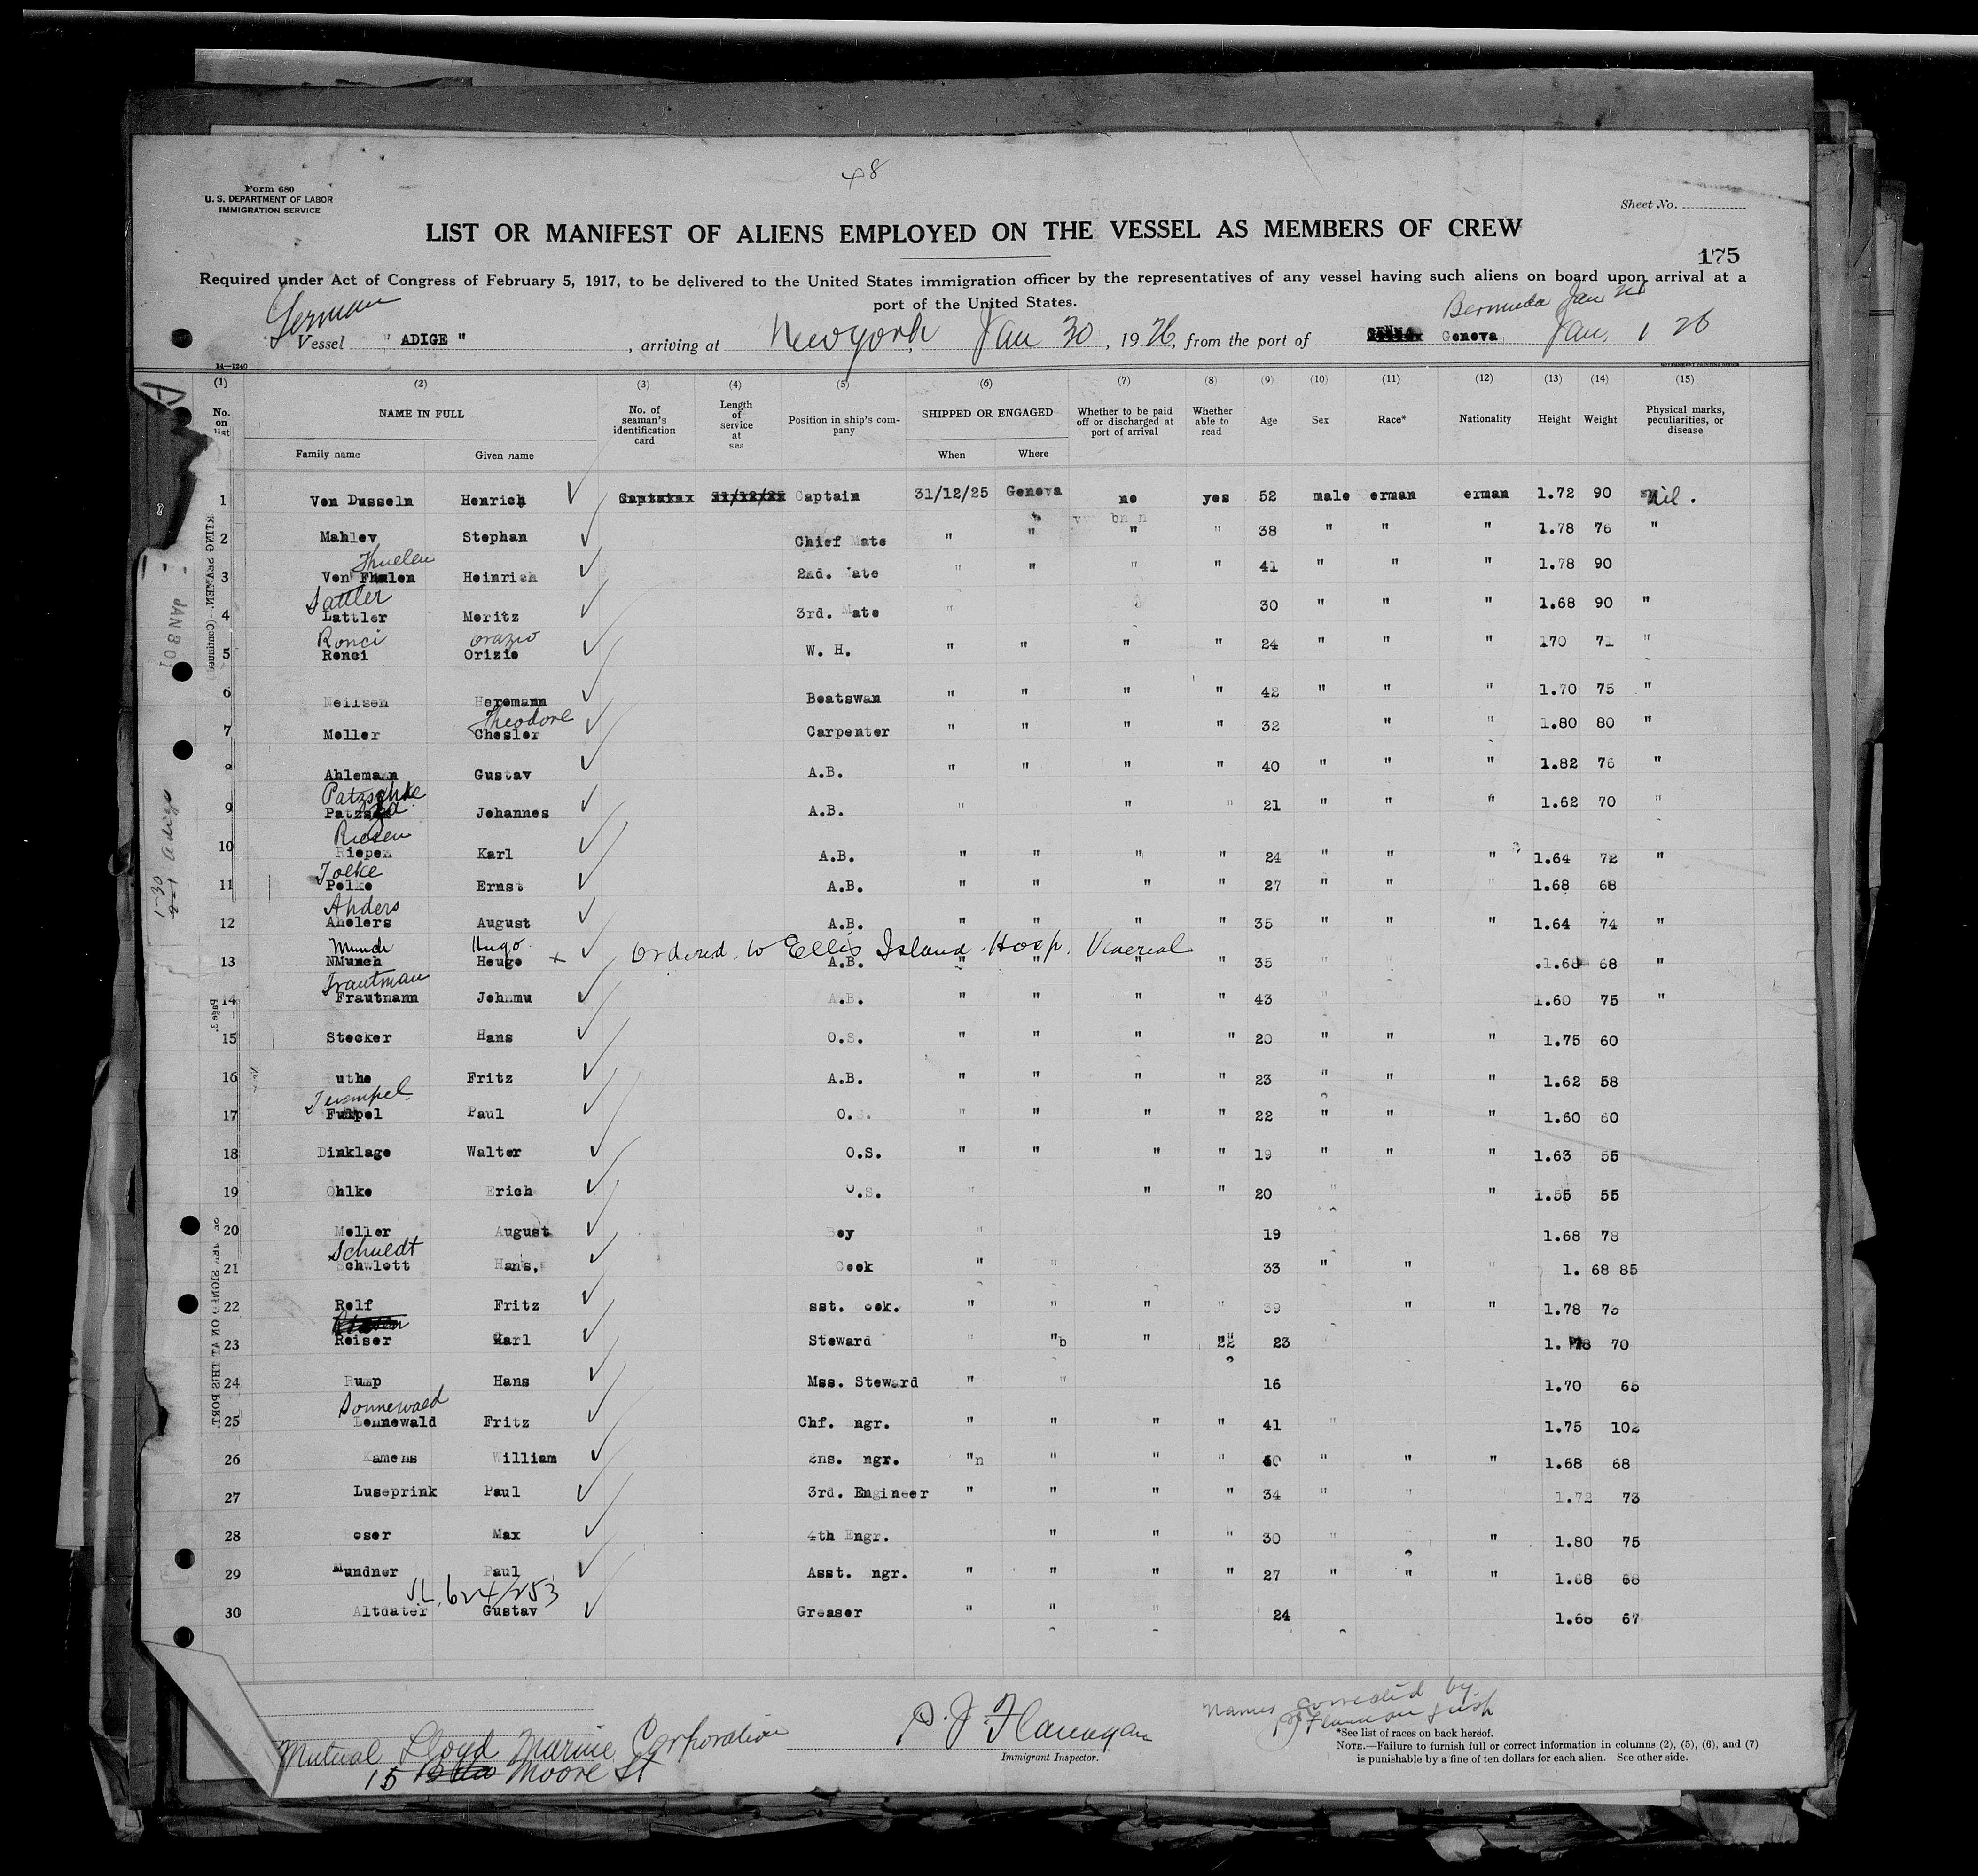 48
Form 680
U. S. DEPARTMENT OF LABOR
IMMIGRATION SERVICE
Sheet No.
LIST OR MANIFEST OF ALIENS EMPLOYED ON THE VESSEL AS MEMBERS OF CREW
175
Required under Act of Congress of February 5, 1917, to be delivered to the United States immigration officer by the representatives of any vessel having such aliens on board upon arrival at a
port of the United States.
German
Bermuda Jan
Vessel " ADIGE " , arriving at New York Jan 30 , 1926, from the port of Geneva Jan. 1 26
14—1240
(1) (2) (3) (4) (5) (6) (7) (8) (9) (10) (11) (12) (13) (14) (15)
No. on list NAME IN FULL No. of seaman's identification card Length of service at sea Position in ship's company SHIPPED OR ENGAGED Whether to be paid off or discharged at port of arrival Whether able to read Age Sex Race* Nationality Height Weight Physical marks, peculiarities, or disease
Family name Given name When Where
1 Von Dusseln Henrich Captain 31/12/25 Geneva no yes 52 male erman erman 1.72 90 nil.
2 Mahlev Stephan Chief Mate " " " " 38 " " " 1.78 76 "
Thuelen
3 Von Fhalen Heinrich 2nd. Mate " " " " 41 " " " 1.78 90
Sattler
4 Lattler Moritz 3rd. Mate " 30 " " " 1.68 90 "
Ronci Orazio
5 Ronci Orizio W. H. " " " " 24 " " " 170 71 "
6 Neilsen Heromann Boatswan " " " " 42 " " " 1.70 75 "
Theodore
7 Moller Chesler Carpenter " " " " 32 " " 1.80 80 "
8 Ahlemann Gustav A.B. " " " " 40 " " " 1.82 76 "
Patzschke
9 Johannes A.B. " " " 21 " " " 1.62 70 "
10 Riepen Karl A.B. " " " " 24 " " " 1.64 72 "
Tolke
11 Polke Ernst A.B. " " " " 27 " " " 1.68 68
Ahders
12 Ahelers August A.B. " " " " 35 " " " 1.64 74 "
Munch Hugo x Ordered to Ellis Island Hosp. Venereal
13 NMunch Heugo A.B. " " 35 " 1.68 68 "
Trautman
14 Frautmann Johnmu A.B. " " " " 43 1.60 75 "
15 Stocker Hans O.S. " " " " 20 " " " 1.75 60
16 uthe Fritz A.B. " " " " 23 " " " 1.62 58
17 Paul O. " " " " 22 " " " 1.60 60
18 Dinklage Walter O.S. " " " " 19 " " " 1.63 55
19 Ohlke Erich O.S. " " " 20 " " 1.55 55
20 Moller August Boy " 19 1.68 78
Schuedt
21 Schwlott Hans, Cook " " 33 " " " 1. 68 85
22 Rolf Fritz sst. ook. " " " " 39 " " 1.78
23 Reiser Karl Steward " "b " 22 23 1. 78 70
24 Rump Hans Mss. Steward " " 16 1.70 65
Sonnewald
25 Lonnewald Fritz Chf. ngr. " " " " 41 " 1.75 102
26 Kamens William 2ns. ngr. "n " " " " " " 1.68 68
27 Luseprink Paul 3rd. Engineer " " " " 34 " " " 1.72 73
28 oser Max 4th Engr. " " " 30 " " " 1.80 75
29 Mundner Paul Asst. ngr. " " " " 27 " " " 1.68 68
624/253
30 Altdater Gustav Greaser " " " 24 1.68 67
Mutual Lloyd Marine Corporation
15 Moore St
P. J. Flanagan
Immigrant Inspector.
Names corrected by
*See list of races on back hereof.
NOTE.—Failure to furnish full or correct information in columns (2), (5), (6), and (7)
is punishable by a fine of ten dollars for each alien. See other side.
1-30
Adige